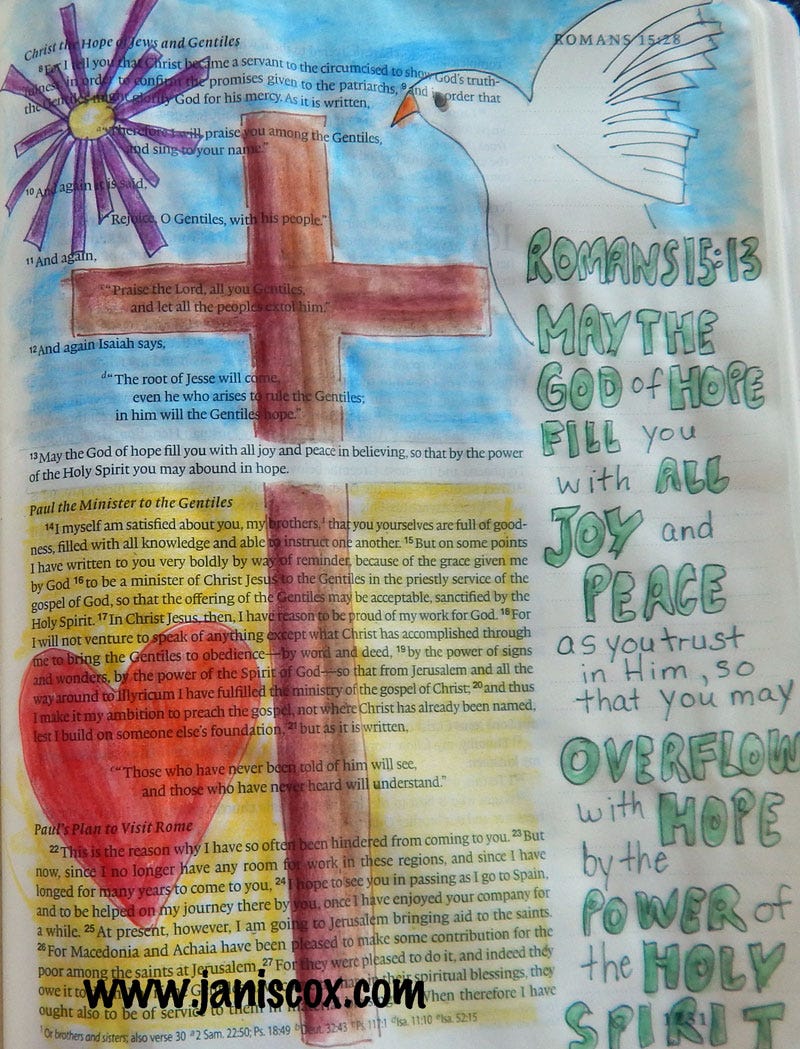 ROMANS 15:28
Christ the Hope of Jews and Gentiles
8For I tell you that Christ became a servant to the circumcised to show God's truth-
fulness, in order to confirm the promises given to the patriarchs, 9and in order that
the Gentiles might glorify God for his mercy. As it is written,
a"Therefore I will praise you among the Gentiles,
and sing to your name."
10And again it is said,
b"Rejoice, O Gentiles, with his people."
11And again,
c"Praise the Lord, all you Gentiles,
and let all the peoples extol him."
12And again Isaiah says,
d"The root of Jesse will come,
even he who arises to rule the Gentiles;
in him will the Gentiles hope."
13May the God of hope fill you with all joy and peace in believing, so that by the power
of the Holy Spirit you may abound in hope.
Paul the Minister to the Gentiles
14I myself am satisfied about you, my brothers,1 that you yourselves are full of good-
ness, filled with all knowledge and able to instruct one another. 15But on some points
I have written to you very boldly by way of reminder, because of the grace given me
by God 16to be a minister of Christ Jesus to the Gentiles in the priestly service of the
gospel of God, so that the offering of the Gentiles may be acceptable, sanctified by the
Holy Spirit. 17In Christ Jesus, then, I have reason to be proud of my work for God. 18For
I will not venture to speak of anything except what Christ has accomplished through
me to bring the Gentiles to obedience—by word and deed, 19by the power of signs
and wonders, by the power of the Spirit of God—so that from Jerusalem and all the
way around to Illyricum I have fulfilled the ministry of the gospel of Christ; 20and thus
I make it my ambition to preach the gospel, not where Christ has already been named,
lest I build on someone else's foundation, 21but as it is written,
e"Those who have never been told of him will see,
and those who have never heard will understand."
Paul's Plan to Visit Rome
22This is the reason why I have so often been hindered from coming to you. 23But
now, since I no longer have any room for work in these regions, and since I have
longed for many years to come to you, 24I hope to see you in passing as I go to Spain,
and to be helped on my journey there by you, once I have enjoyed your company for
a while. 25At present, however, I am going to Jerusalem bringing aid to the saints.
26For Macedonia and Achaia have been pleased to make some contribution for the
poor among the saints at Jerusalem. 27For they were pleased to do it, and indeed they
owe it to in their spiritual blessings, they
ought also to be of service to them in When therefore I have
1 Or brothers and sisters; also verse 30 a2 Sam. 22:50; Ps. 18:49 bDeut. 32:43 cPs. 117:1 dIsa. 11:10 eIsa. 52:15
ROMANS 15:13
MAY THE
GOD of HOPE
FILL you
with ALL
JOY and
PEACE
as you trust
in Him, so
that you may
OVERFLOW
with HOPE
by the
POWER of
the HOLY
SPIRIT
www.janiscox.com